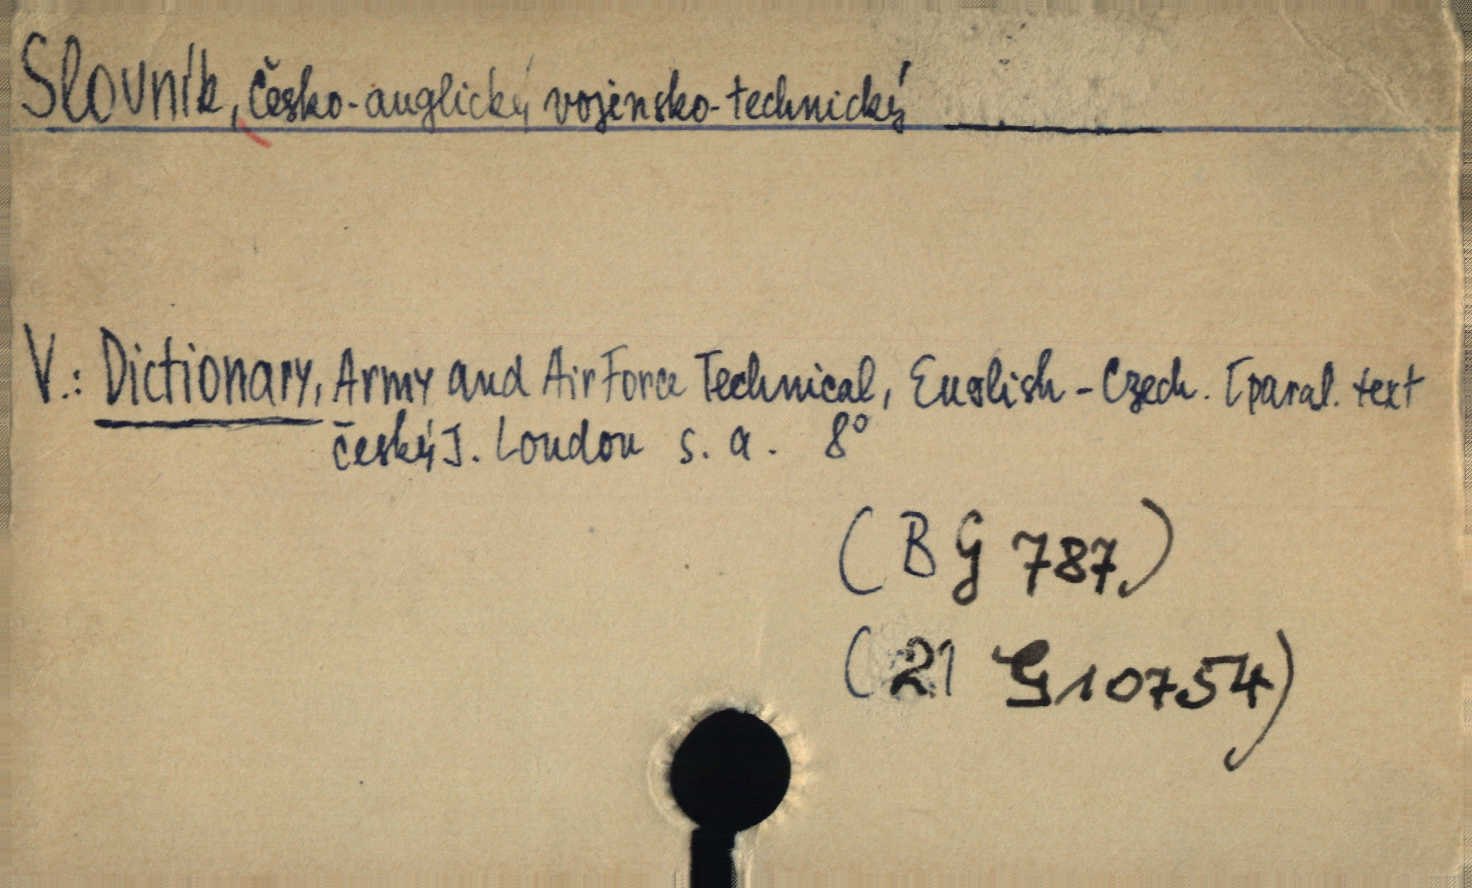 Slovník, česko-anglický vojensko-technický
V.: Dictionary, Army and Air Force Technical, English - Czech. [paral. text
český]. London s. a. 8°
(BG 787)
(21 G10754)